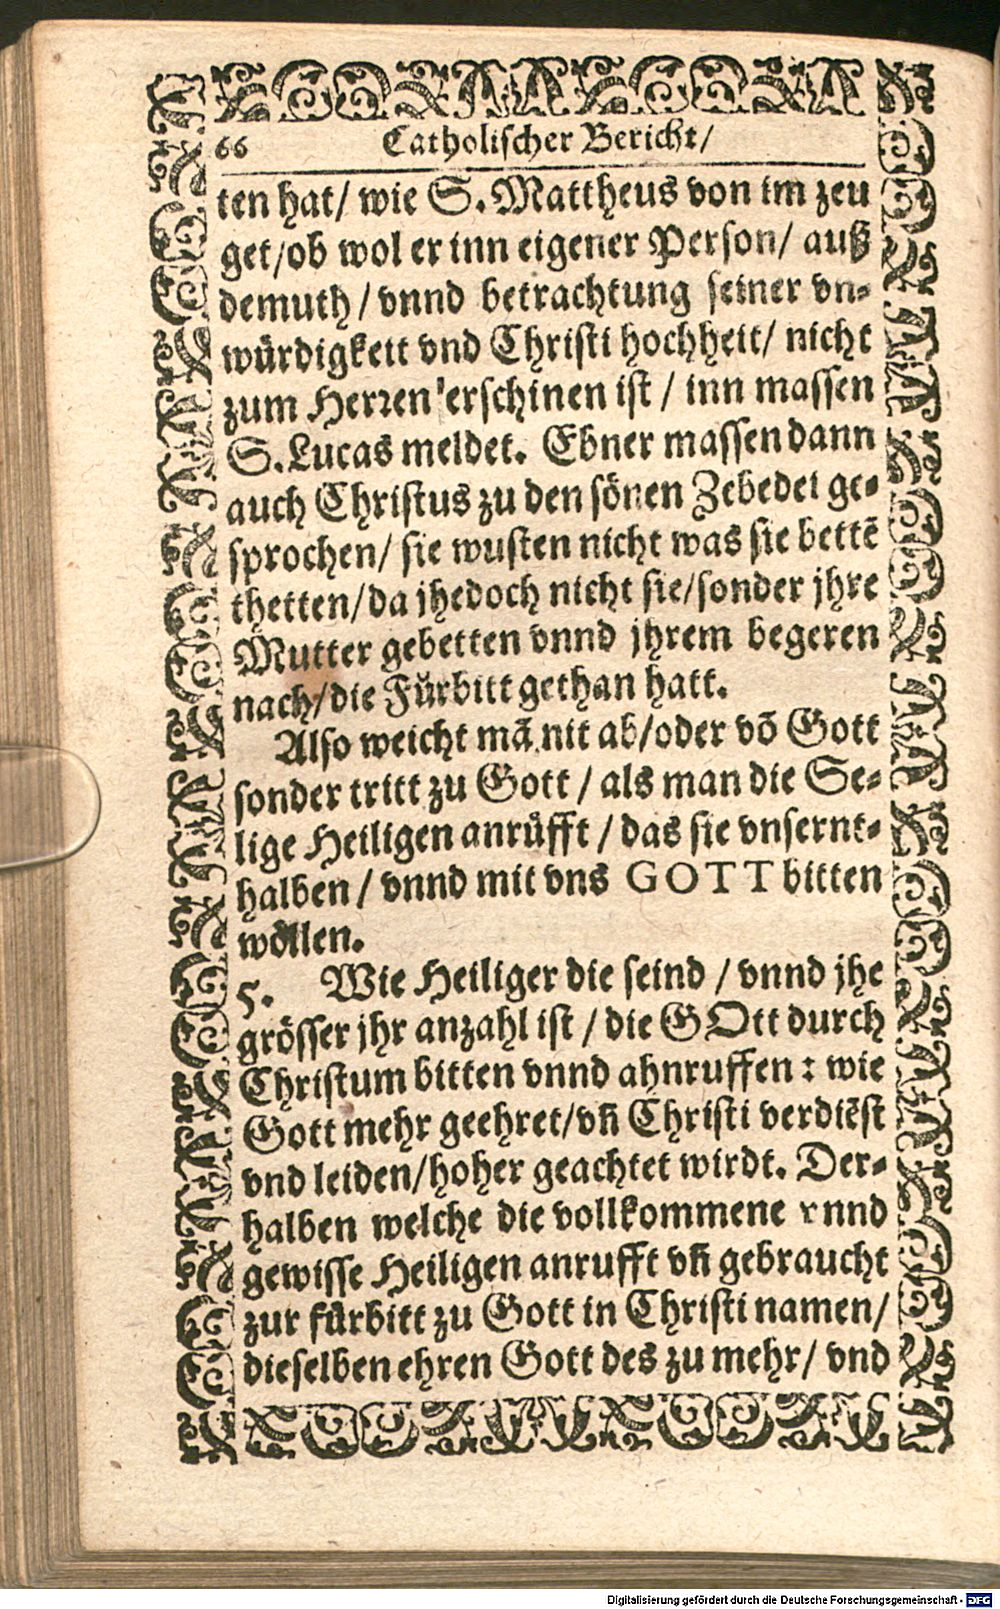 66 Catholischer Bericht/
ten hat/ wie S. Mattheus von im zeu
get/ob wol er inn eigener Person/ auß
demuth/ vnnd betrachtung seiner vn-
würdigkeit vnd Christi hochheit/ nicht
zum Herren erschinen ist / inn massen
S. Lucas meldet. Ebner massen dann
auch Christus zu den sönen Zebedei ge-
sprochen/ sie wusten nicht was sie bettẽ
thetten/da jhedoch nicht sie/sonder jhre
Mutter gebetten vnnd jhrem begeren
nach/die Fürbitt gethan hatt.
Also weicht mã nit ab/oder võ Gott
sonder tritt zu Gott / als man die Se-
lige Heiligen anrüfft / das sie vnsernt-
halben / vnnd mit vns GOTT bitten
wöllen.
5. Wie Heiliger die seind / vnnd jhe
grösser jhr anzahl ist / die GOtt durch
Christum bitten vnnd ahnruffen : wie
Gott mehr geehret/vñ Christi verdiẽst
vnd leiden/hoher geachtet wirdt. Der-
halben welche die vollkommene vnnd
gewisse Heiligen anrufft vñ gebraucht
zur fürbitt zu Gott in Christi namen/
dieselben ehren Gott des zu mehr/ vnd
Digitalisierung gefördert durch die Deutsche Forschungsgemeinschaft - DFG